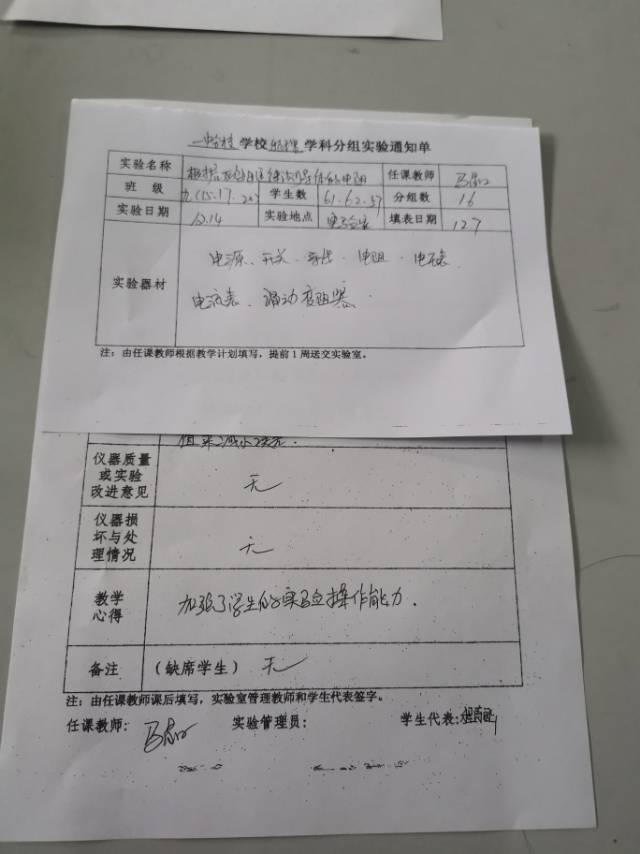 学校物理学科分组实验通知单
实验名称 任课教师
班 级 学生数 61.62.57 分组数 16
实验日期 12.14 实验地点 实验室 填表日期 12.7
实验器材 电源、开关、导线、电阻、电压表
电流表、滑动变阻器.
注：由任课教师根据教学计划填写，提前1周送交实验室。
值来减小误差.
仪器质量
或实验
改进意见 无
仪器损
坏与处
理情况 无
教学
心得 加强了学生的实验操作能力.
备注 （缺席学生） 无
注：由任课教师课后填写，实验室管理教师和学生代表签字。
任课教师： 实验管理员： 学生代表：